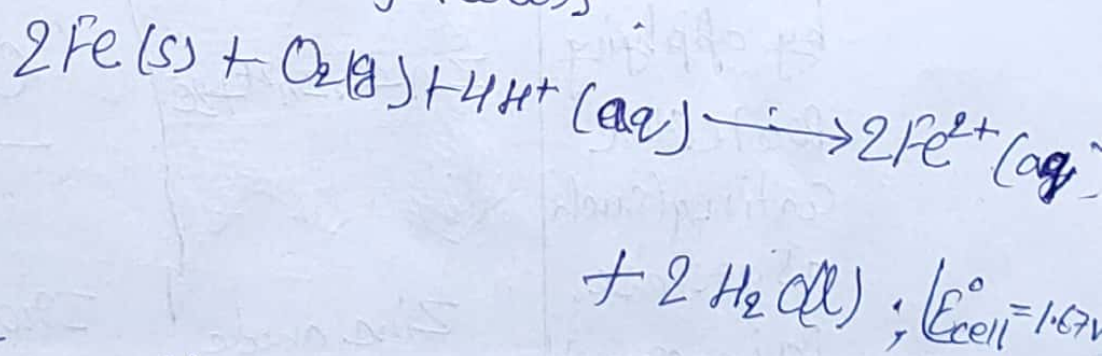 2Fe (s) + O₂(g) + 4H⁺ (aq) → 2Fe²⁺ (aq)
+ 2 H₂O(l) ; E°cell = 1.67V